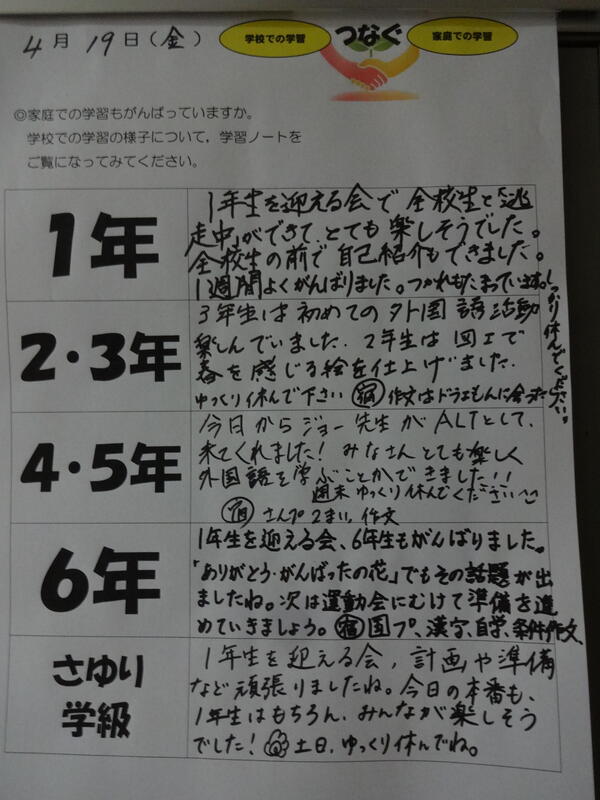 4月19日(金)
学校での学習
つなぐ
家庭での学習
◎家庭での学習もがんばっていますか。
学校での学習の様子について,学習ノートを
ご覧になってみてください。
1年
1年生を迎える会で全校生と「逃
走中」ができて、とても楽しそうでした。
全校生の前で自己紹介もできました。
1週間よくがんばりました。つかれもたまっています。
しっかり休んでください。
2・3年
3年生は初めての外国語活動
楽しんでいました。2年生は図工で
春を感じる絵を仕上げました。
ゆっくり休んで下さい 宿 作文はドラえもんに会ったら
4・5年
今日からジョー先生がALTとして、
来てくれました!みなさんとても楽しく
外国語を学ぶことができました!!
週末ゆっくり休んでください
宿 さんプ2まい、作文
6年
1年生を迎える会、6年生もがんばりました。
「ありがとう・がんばったの花」でもその話題が出
ましたね。次は運動会にむけて準備を進
めていきましょう。宿 国プ、漢字、自学、条件作文
さゆり
学級
1年生を迎える会,計画や準備
など頑張りましたね。今日の本番も、
1年生はもちろん、みんなが楽しそう
でした! 土日、ゆっくり休んでね。